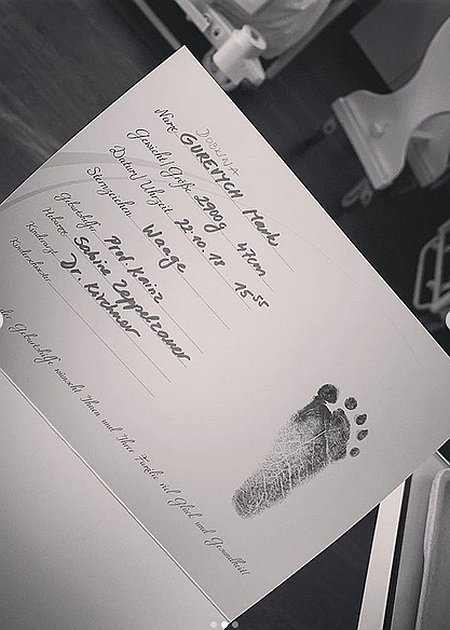 DOBKINA
Name GUREVICH Mark
Gewicht/Größe 2900g 47cm
Datum/Uhrzeit 22.10.18 15 55
Sternzeichen Waage
Geburtshilfe Prof. Kainz
Hebamme Sabine Zeppelzauer
Kinderarzt Dr. Kirchner
Kinderschwester
Geburtshilfe wünscht Ihnen und Ihrer Familie viel Glück und Gesundheit!